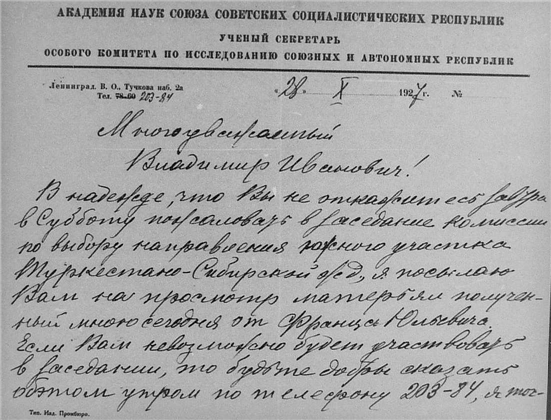 АКАДЕМИЯ НАУК СОЮЗА СОВЕТСКИХ СОЦИАЛИСТИЧЕСКИХ РЕСПУБЛИК
УЧЕНЫЙ СЕКРЕТАРЬ
ОСОБОГО КОМИТЕТА ПО ИССЛЕДОВАНИЮ СОЮЗНЫХ И АВТОНОМНЫХ РЕСПУБЛИК
Ленинград. В. О., Тучкова наб. 2а
Тел. 78-60 203-84
„28 X 1927 г. №
Многоуважаемый
Владимир Иванович!
В надежде, что Вы не откажитесь завтра
в Субботу пожаловать в заседание комиссии
по выбору направления южного участка
Туркестано-Сибирской ж/д, я посылаю
Вам на просмотр матерьял получен-
ный мною сегодня от Франца Юльевича.
Если Вам невозможно будет участвовать
в заседании, то будьте добры сказать
об этом утром по телефону 203-84, я тот-
Тип. Изд. Промбюро.